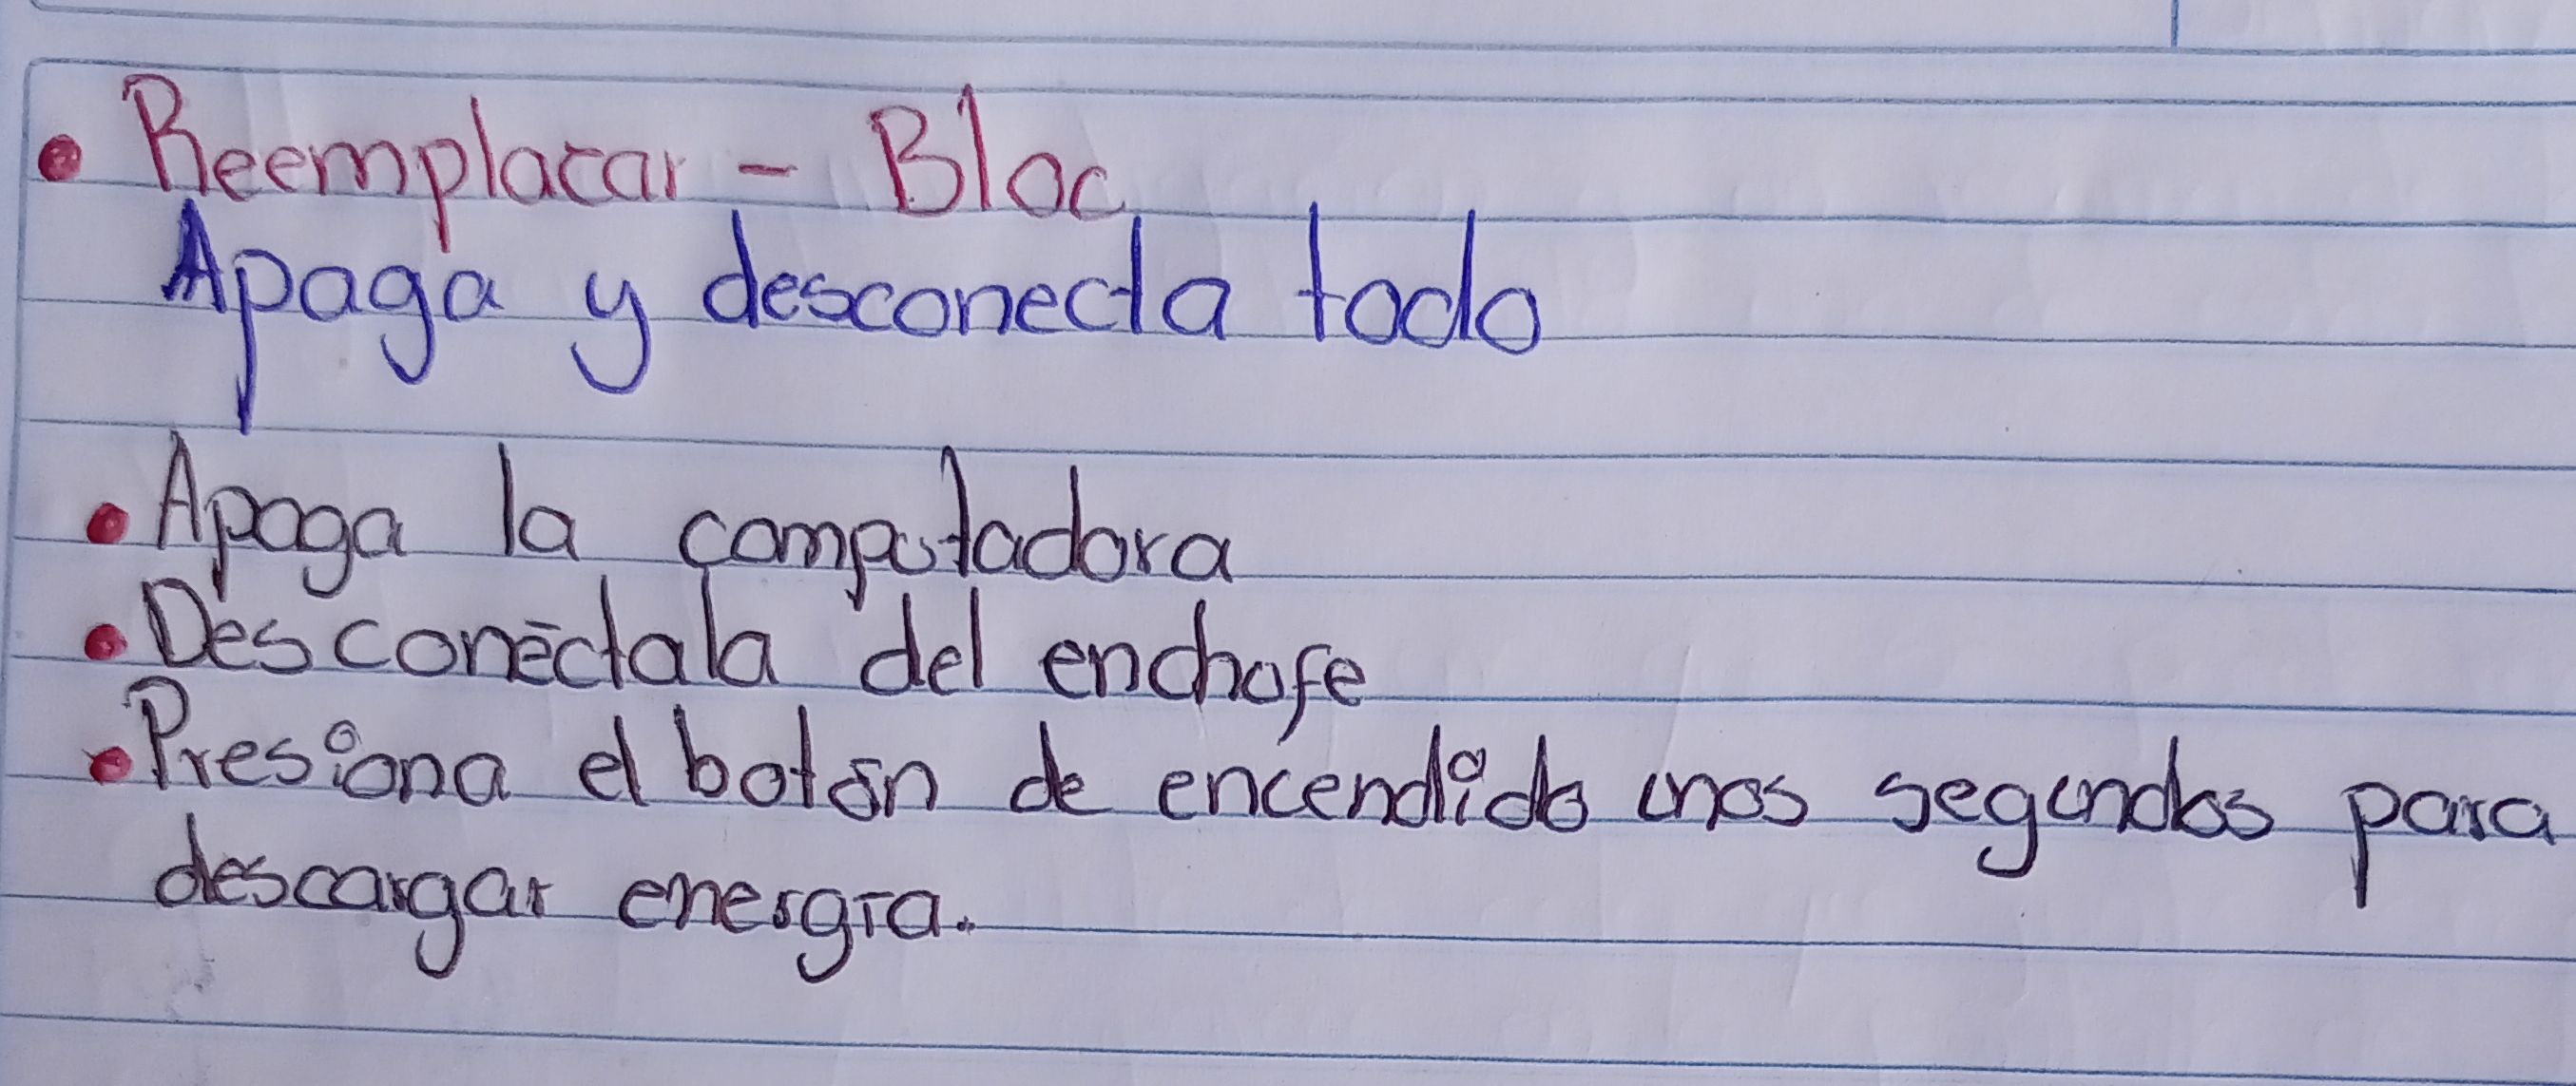 • Reemplacar - Bloc
Apaga y desconecta todo
• Apaga la computadora
• Desconéctala del enchofe
• Presiona el botón de encendido unos segundos para
descargar energía.